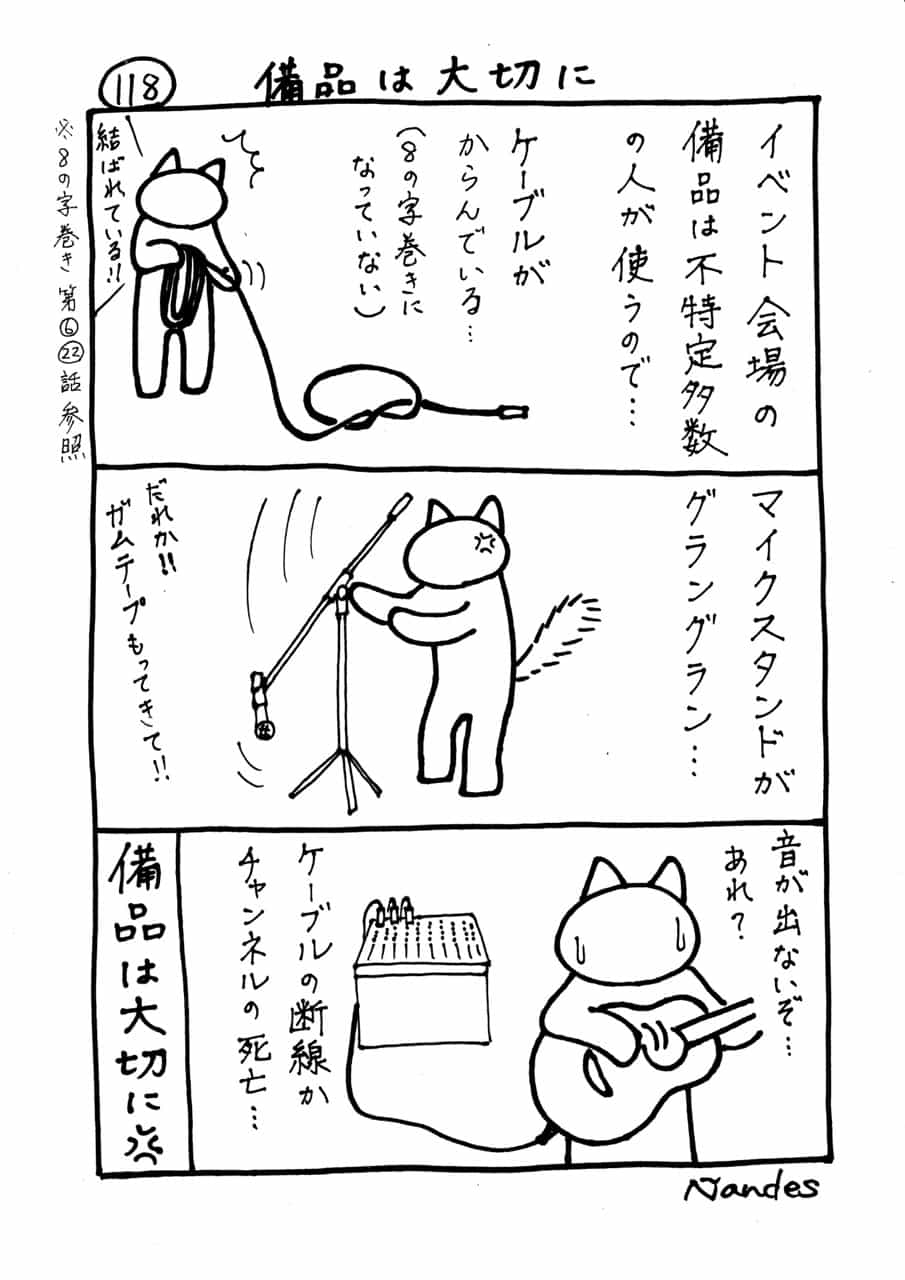 118
備品は大切に
イベント会場の
備品は不特定多数
の人が使うので…
ケーブルが
からんでいる…
(8の字巻きに
なっていない)
結ばれている!!
※8の字巻き 第⑥㉒話参照
マイクスタンドが
グラングラン…
だれか!!
ガムテープもってきて!!
音が出ないぞ…
あれ?
ケーブルの断線か
チャンネルの死亡…
備品は大切に
Nandes